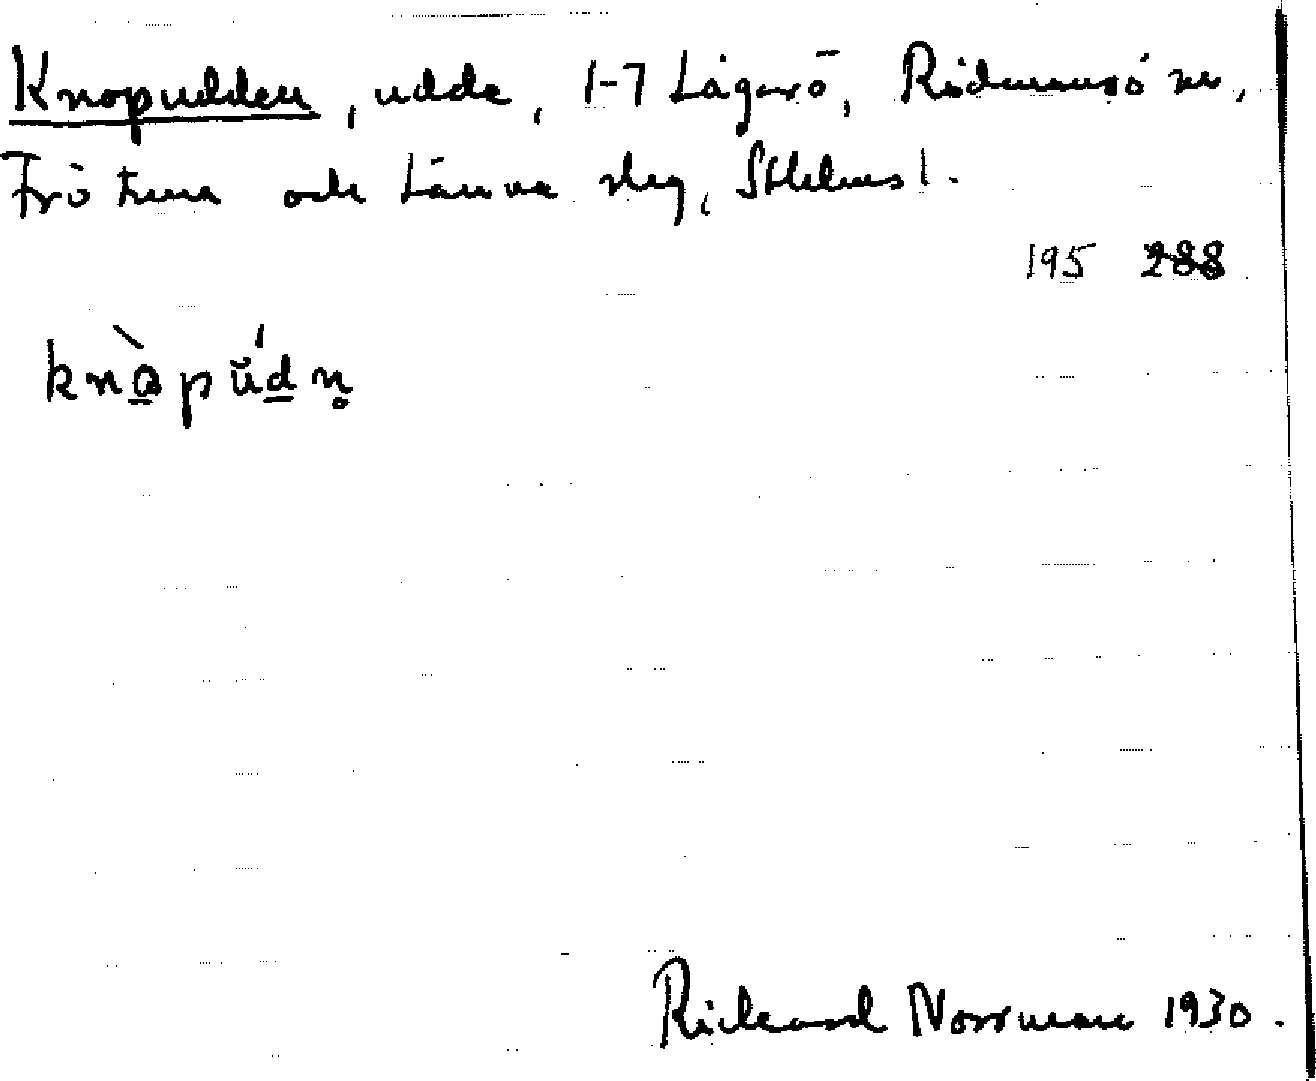 Knopudden, udde, 1-7 Lågarö, Rådmansö sn,
Frötuna och Länna slg, Sthlms l.
195 288
knàpŭ́dn̥
Rickard Norrman 1930.